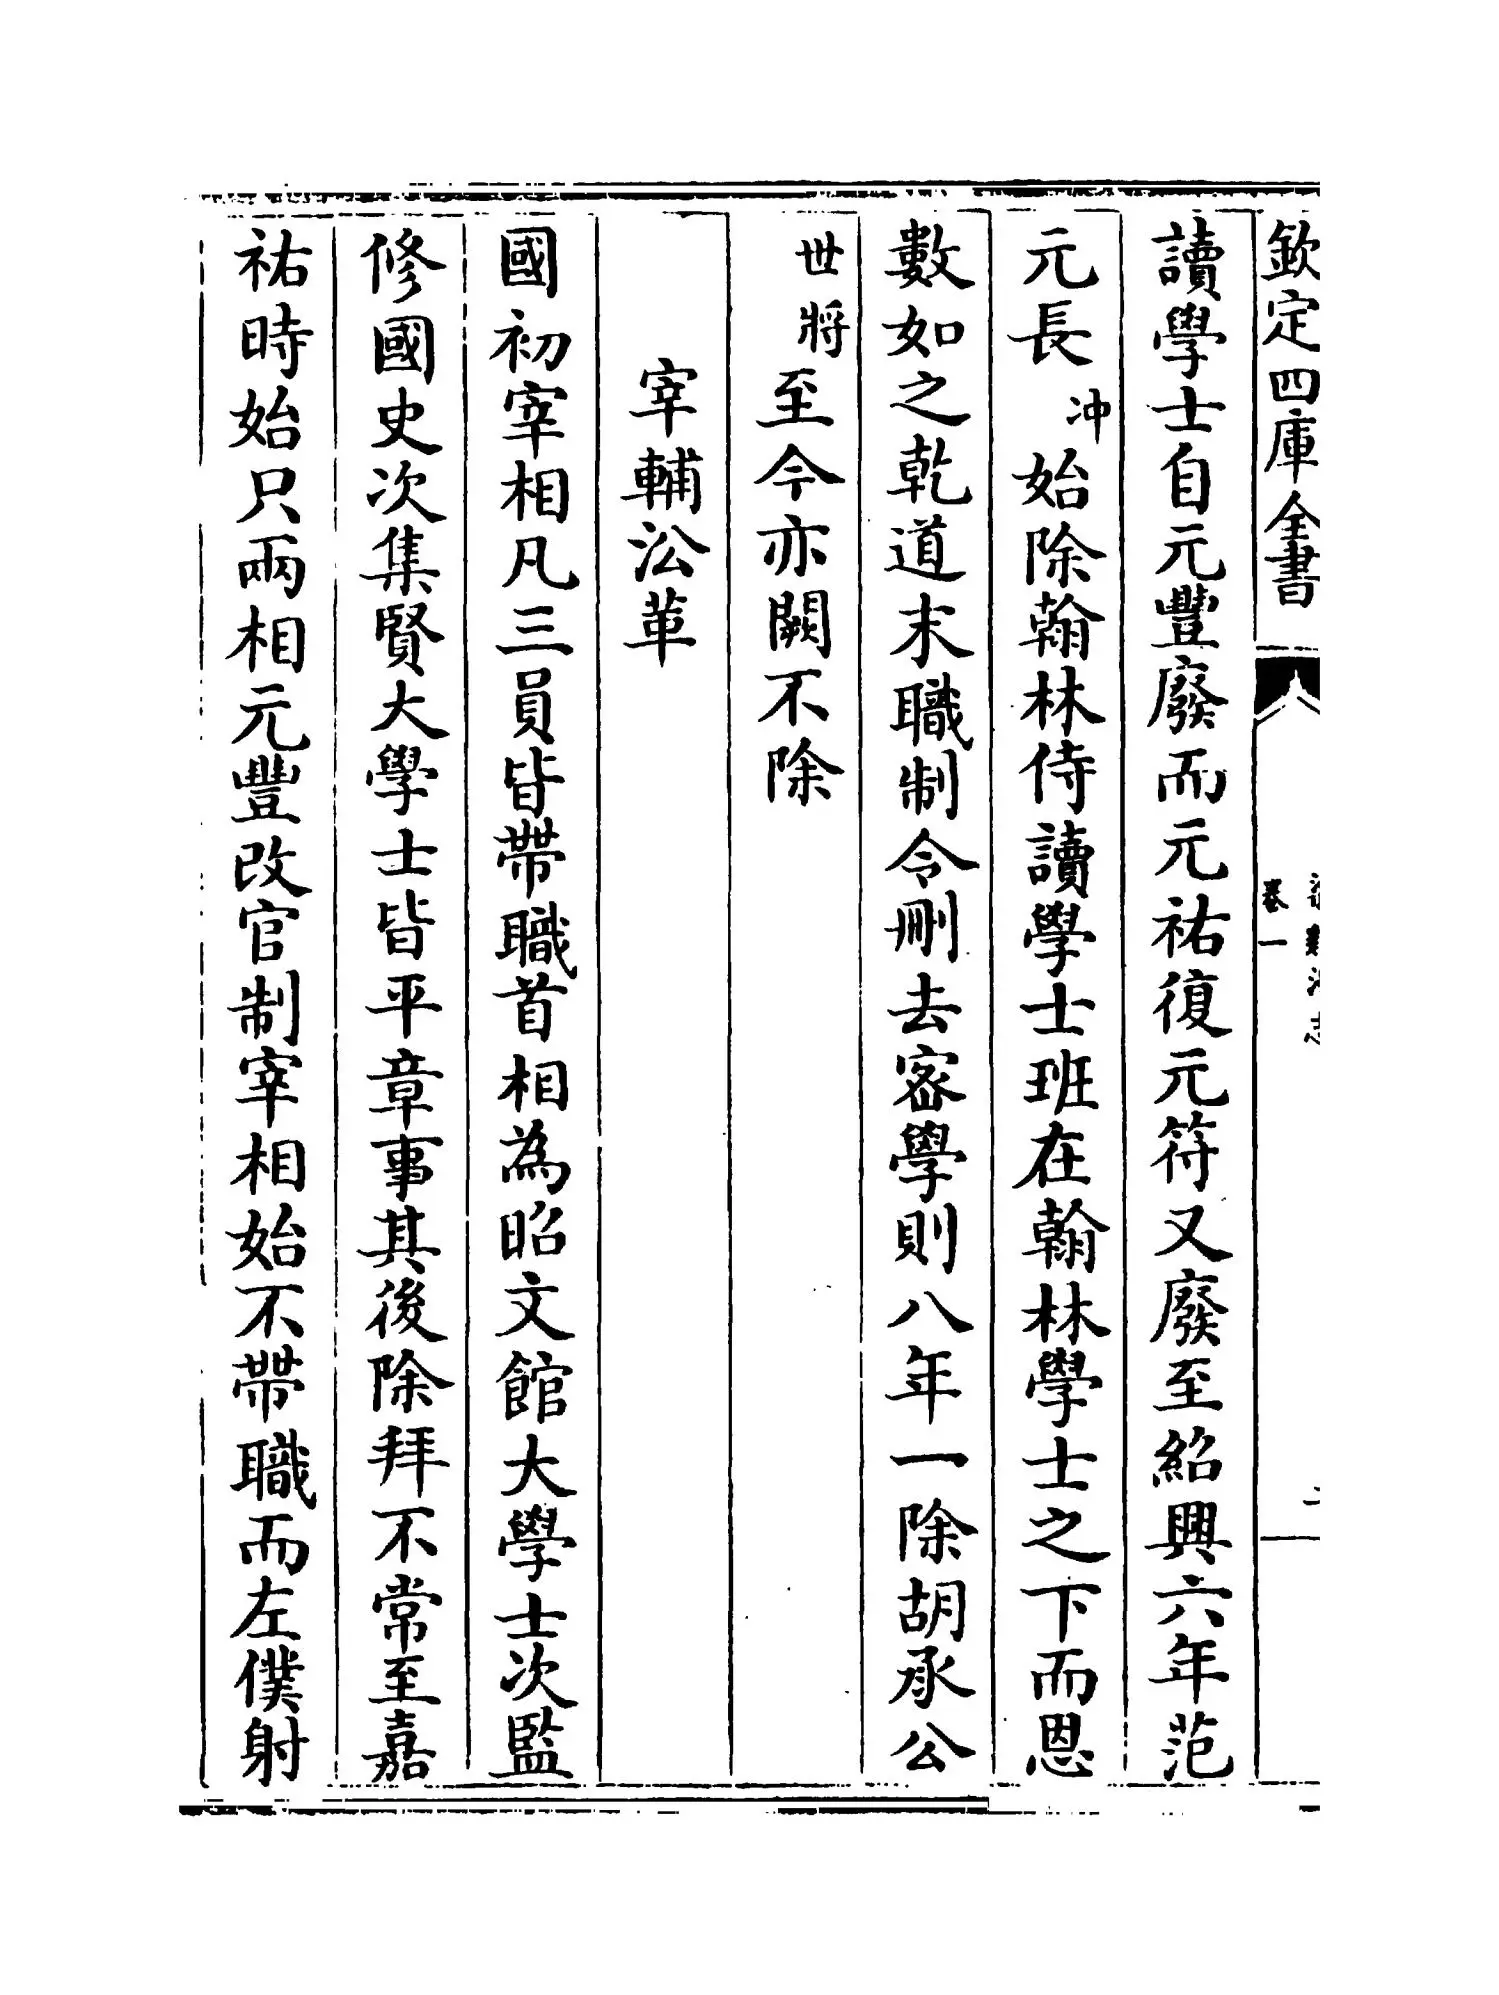 欽定四庫全書
卷一
讀學士自元豐廢而元祐復元符又廢至紹興六年范
元長冲始除翰林侍讀學士班在翰林學士之下而恩
數如之乾道末職制令刪去密學則八年一除胡承公
世將至今亦闕不除
宰輔㳂革
國初宰相凡三員皆帶職首相為昭文館大學士次監
修國史次集賢大學士皆平章事其後除拜不常至嘉
祐時始只兩相元豐改官制宰相始不帶職而左僕射